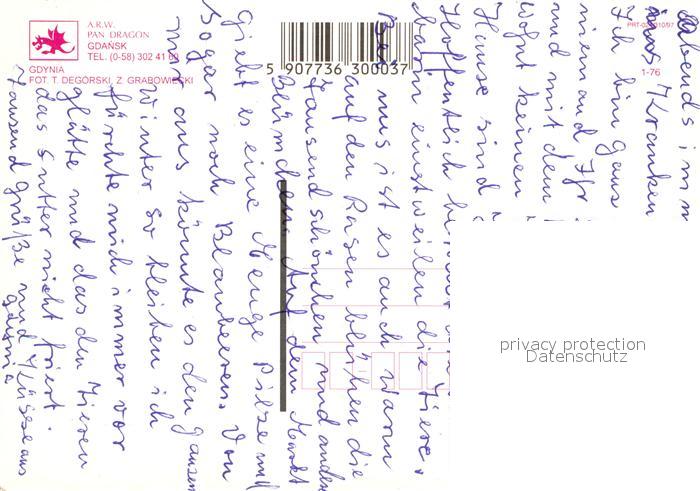 A.R.W.
PAN DRAGON
GDAŃSK
TEL. (0-58) 302 41 60
GDYNIA
FOT. T. DEGÓRSKI, Z. GRABOWIECKI
5 907736 300037
1-76
abends im
Kranken
Ich bin ganz
niemand Ihr
und mit dem
wohnt keinen
Hause sind
Hoffentlich
dann einstweilen die Tiere.
Bei uns ist es auch warm
auf den Rasen blühen die
Tausendschönchen und andere
Blümchen. Auf dem Markt
giebt es eine Menge Pilze und
sogar noch Blaubeeren. Von
mir aus könnte es den ganzen
Winter so bleiben ich
fürchte mich immer vor
glätte und das den Tieren
das Futter nicht friert.
Tausend grüße und Küsse aus
Gdynia
privacy protection
Datenschutz